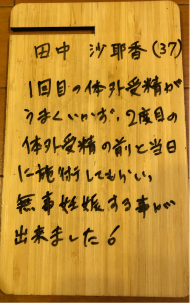 田中 沙耶香(37)
1回目の体外受精が
うまくいかず、2度目の
体外受精の前りと当日
に施術してもらい、
無事妊娠する事が
出来ました6